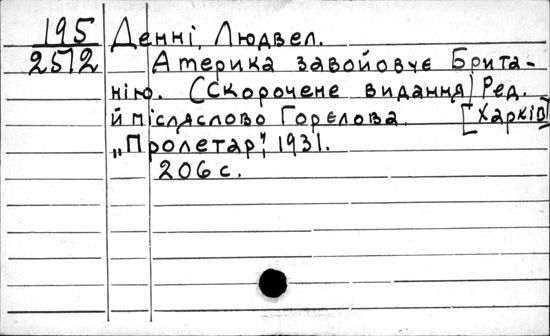 195 Денні, Людвел.
2572 Америка завойовує Брита-
нію. (Скорочене видання) Ред.
й післяслово Горєлова. [Харків]
„Пролетар", 1931.
206 с.